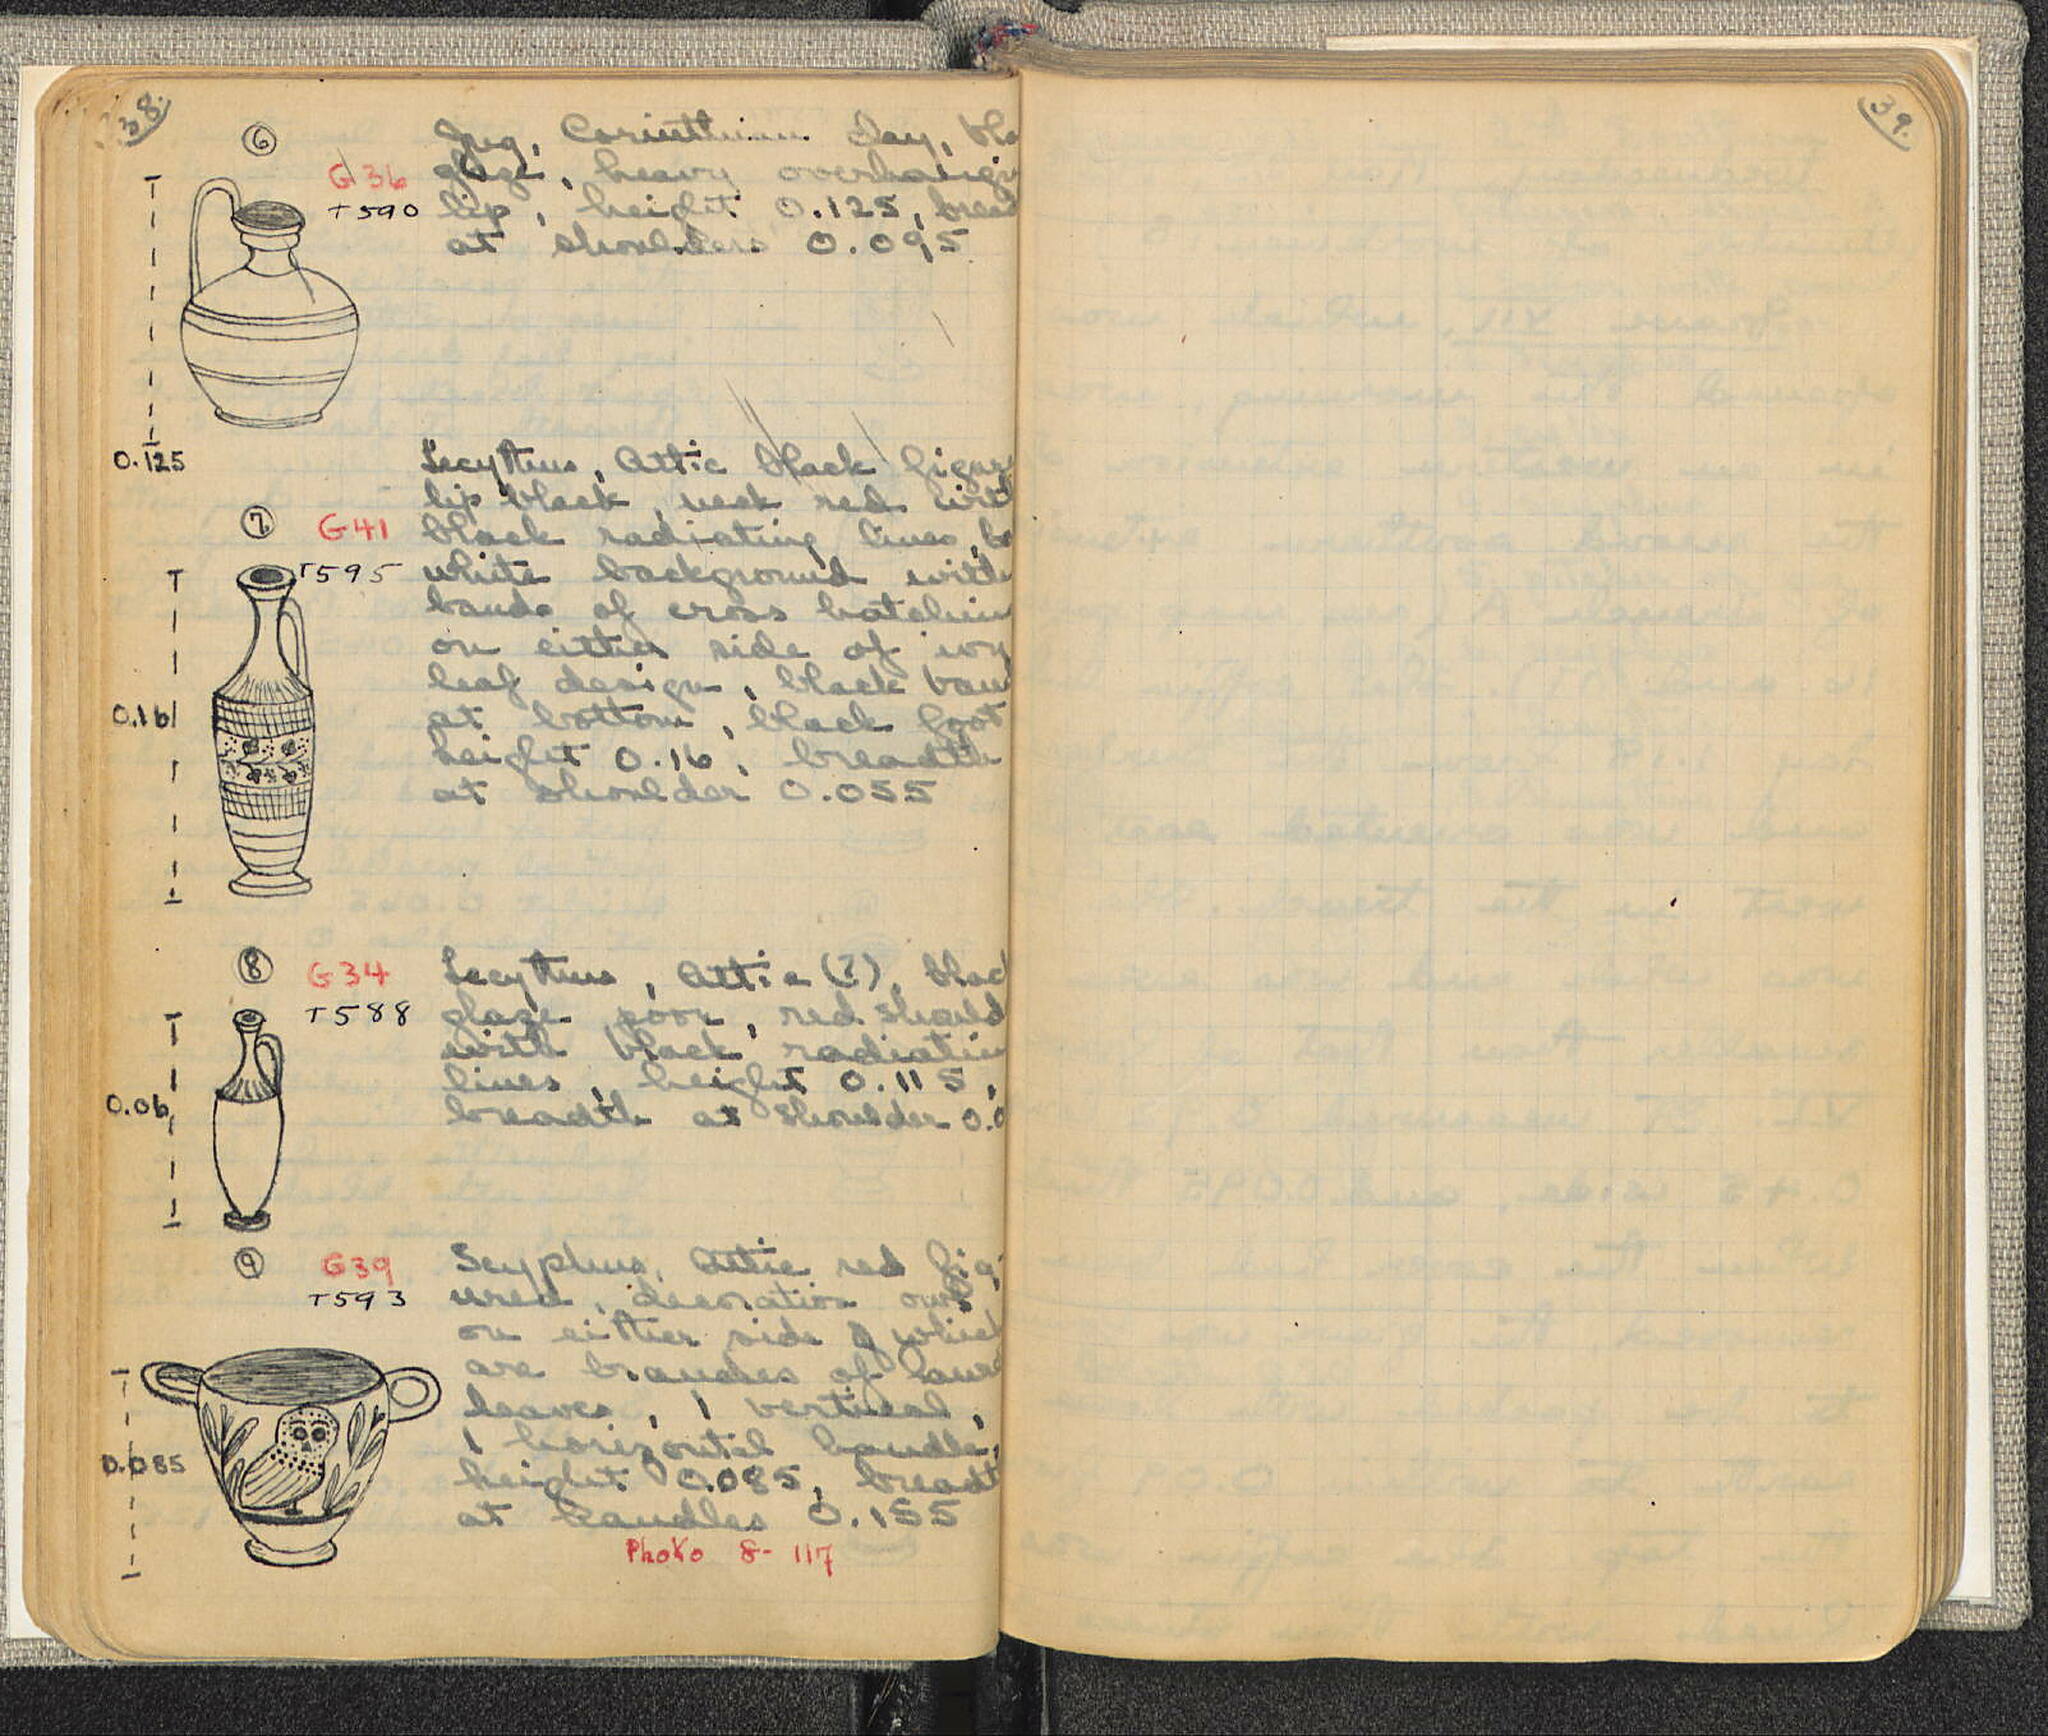 38.
⑥
G 36
T590
Jug, Corinthian clay, bla
glaze, heavy overhangi
lip, height 0.125, bread
at shoulders 0.095
0.125
⑦
G 41
T595
Lecythus, Attic black figur
lip black, neck red with
black radiating lines, bo
white background with
bands of cross hatchin
on either side of ivy
leaf design, black ban
at bottom, black foot
height 0.16, breadth
at shoulder 0.055
0.16
⑧
G 34
T588
Lecythus, Attic (?), blac
glaze poor, red should
with black radiatin
lines, height 0.115,
breadth at shoulder 0.0
0.06
⑨
G39
T593
Scyphus, Attic red fig-
ured, decoration owl
on either side of which
are branches of laurel
leaves, 1 vertical,
1 horizontal handle,
height 0.085, breadt
at handles 0.155
0.085
Photo 8-117
39.